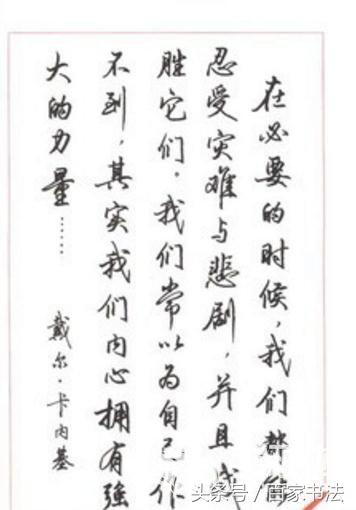 在必要的时候，我们都
忍受灾难与悲剧，并且战
胜它们。我们常以为自己作
不到，其实我们内心拥有強
大的力量……
戴尔·卡内基
头条号／百家书法